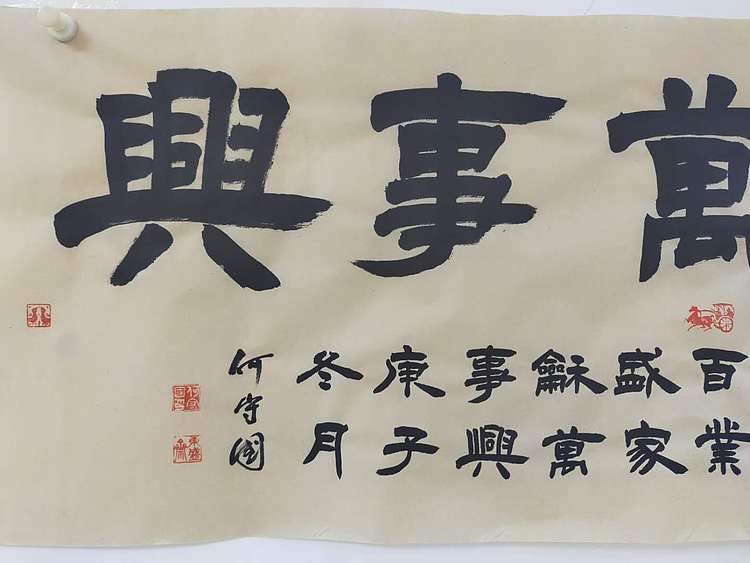 萬事興
百業
盛家
龢萬
事興
庚子
冬月
何守國